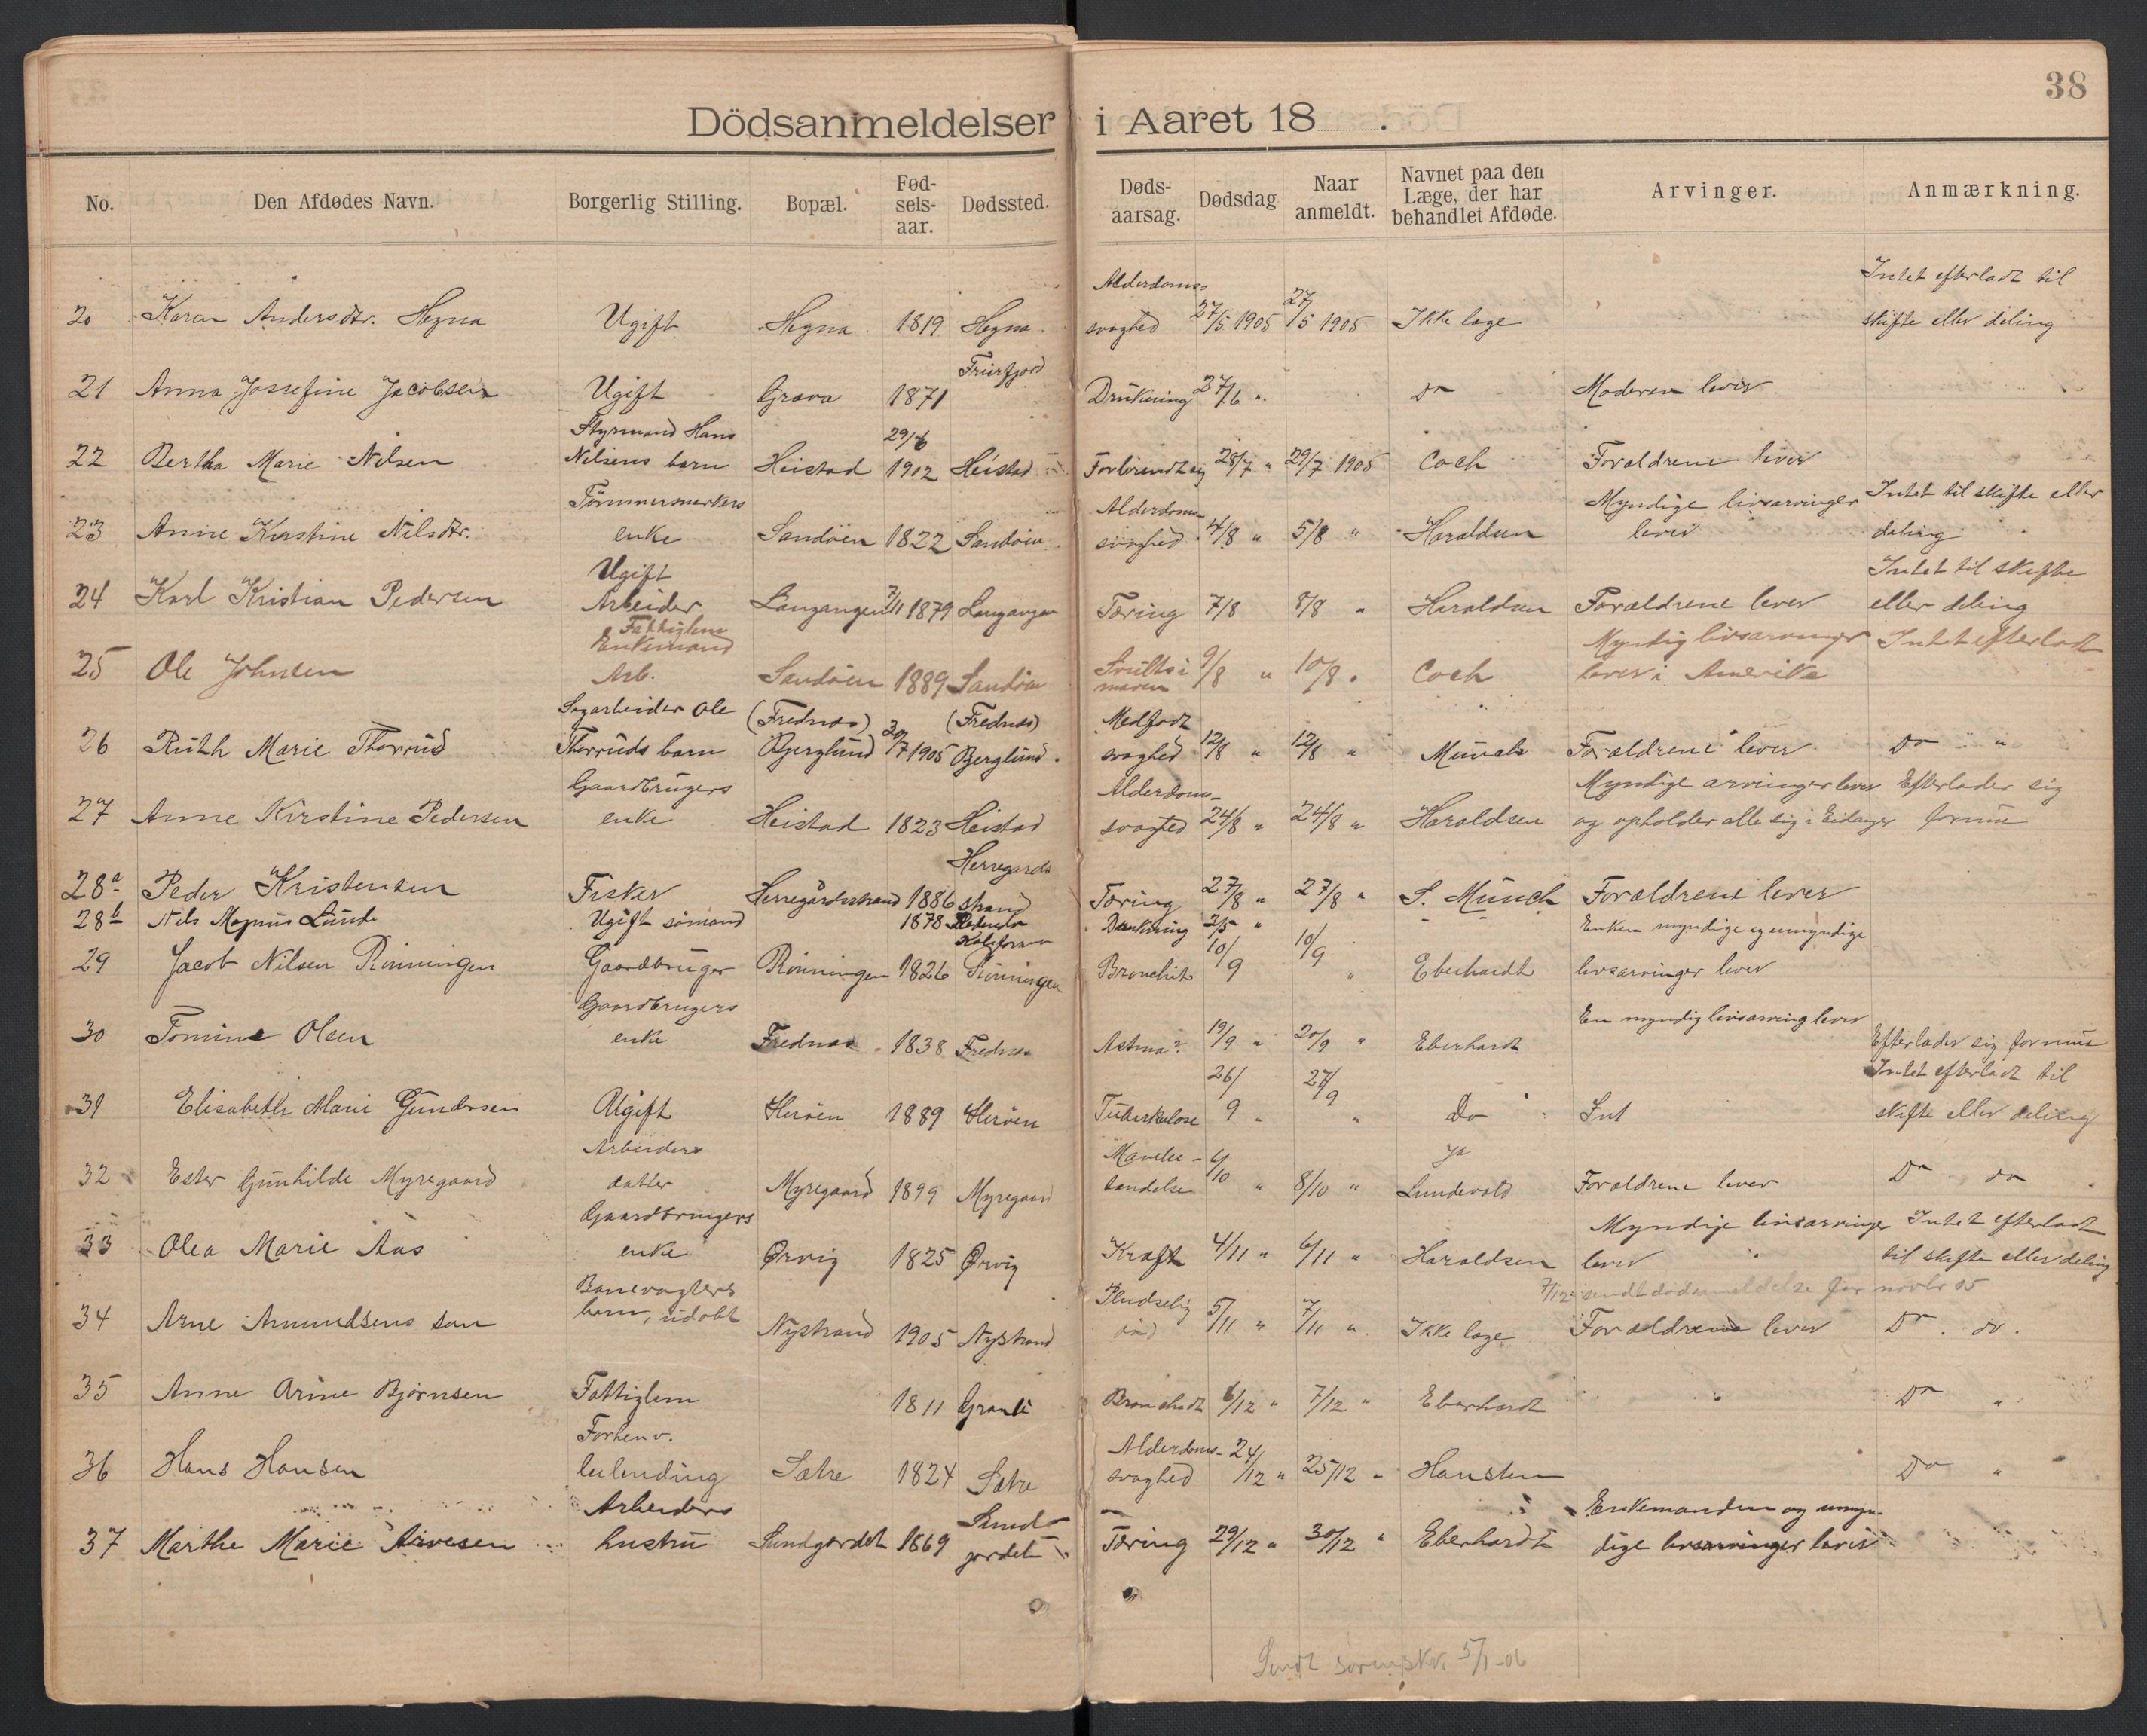 38
Dödsanmeldelser i Aaret 18 .
No. Den Afdødes Navn. Borgerlig Stilling. Bopæl. Fød-sels-aar. Dødssted. Døds-aarsag. Dødsdag Naar anmeldt. Navnet paa den Læge, der har behandlet Afdøde. Arvinger. Anmærkning.
Alderdoms- Intet efterladt til
20 Karen Andersdtr. Hegna Ugift Hegna 1819 Hegna svaghed 27/5 1905 27/5 1905 Ikke læge skifte eller deling
Frierfjord
21 Anna Jossefine Jacobsen Ugift Grava 1871 Drukning 27/6 " Do Moderen lever
Styrmand Hans 29/6
22 Bertha Marie Nilsen Nilsens barn Heistad 1902 Heistad 28/7 " 29/7 1905 Coch Forældrene lever
Tömmermerkers Alderdoms- Myndige livsarvinger Intet til skifte eller
23 Anne Kirstine Nilsdtr. enke Sandöen 1822 Sandöen svaghed 4/8 " 5/8 " Haraldsen lever deling
Ugift Intet til skifte
24 Karl Kristian Pedersen Arbeider Langangen 7/11 1879 Langangen Tæring 7/8 8/8 " Haraldsen Forældrene lever eller deling
Fattiglem
Enkemand Myndig livsarvinger Intet efterladt
25 Ole Johnsen Arb. Sandöen 1889 Sandöen Svulst i maven 9/8 " 10/8 " Coch lever i Amerika
Sagarbeider Ole (Frednæs) (Frednæs) Medfødt
26 Ruth Marie Thorrud Thorruds barn Bjerglund 30/7 1905 Berglund svaghed 12/8 " 12/8 " Münch Forældrene lever Do "
Gaardbrugers Alderdoms- Myndige arvinger lever Efterlader sig
27 Anne Kirstine Pedersen enke Heistad 1823 Heistad svaghed 24/8 " 24/8 " Haraldsen og opholder alle sig i Eidanger formue
Herregards
28a Peder Kristensen Fisker Herregårdsstrand 1886 strand Tæring 27/8 " 27/8 " S. Münch Forældrene lever
28b Nils Magnus Lunde Ugift sömand 1878 Drukning 2/5 " Enken myndige og umyndige
29 Jacob Nilsen Rönningen Gaardbruger Rönningen 1826 Rönningen Bronchit 10/9 10/9 " Eberhardt livsarvinger lever
Gaardbrugers En myndig livsarving lever
30 Tomine Olsen enke Frednæs 1838 Frednæs Astma? 19/9 " 20/9 " Eberhardt Efterlader sig formue
Intet efterladt til
31 Elisabeth Marie Gundersen Ugift Heröen 1889 Heröen Tuberkulose 26/9 " 27/9 " do skifte eller deling
Arbeiders Mavebe- ja
32 Ester Gunhilde Myregaard datter Myregaard 1899 Myregaard tændelse 6/10 " 8/10 " Lundevold Forældrene lever Do do
Gaardbrugers Myndige livsarvinger Intet efterladt
33 Olea Marie Aas enke Ørvig 1825 Ørvig Kræft 4/11 " 6/11 " Haraldsen lever til skifte eller deling
7/12 sendt dødsmeldelse for novbr 05
Banevogters Pludselig
34 Arne Amundsens søn barn, udøbt Nystrand 1905 Nystrand død 5/11 " 7/11 " Ikke læge Forældrene lever Do. do.
35 Anne Arine Bjørnsen Fattiglem 1811 Granli 6/12 " 7/12 " Eberhardt Do "
Forhenv. Alderdoms-
36 Hans Hansen leilending Sætre 1824 Sætre svaghed 24/12 " 25/12 " Hansten Do "
Arbeiders Sund- Enkemanden og umyn-
37 Marthe Marie Arvesen hustru Sundgordet 1869 gordet Tæring 29/12 " 30/12 " Eberhardt dige livsarvinger lever
Sendt sorenskr. 5/1-06